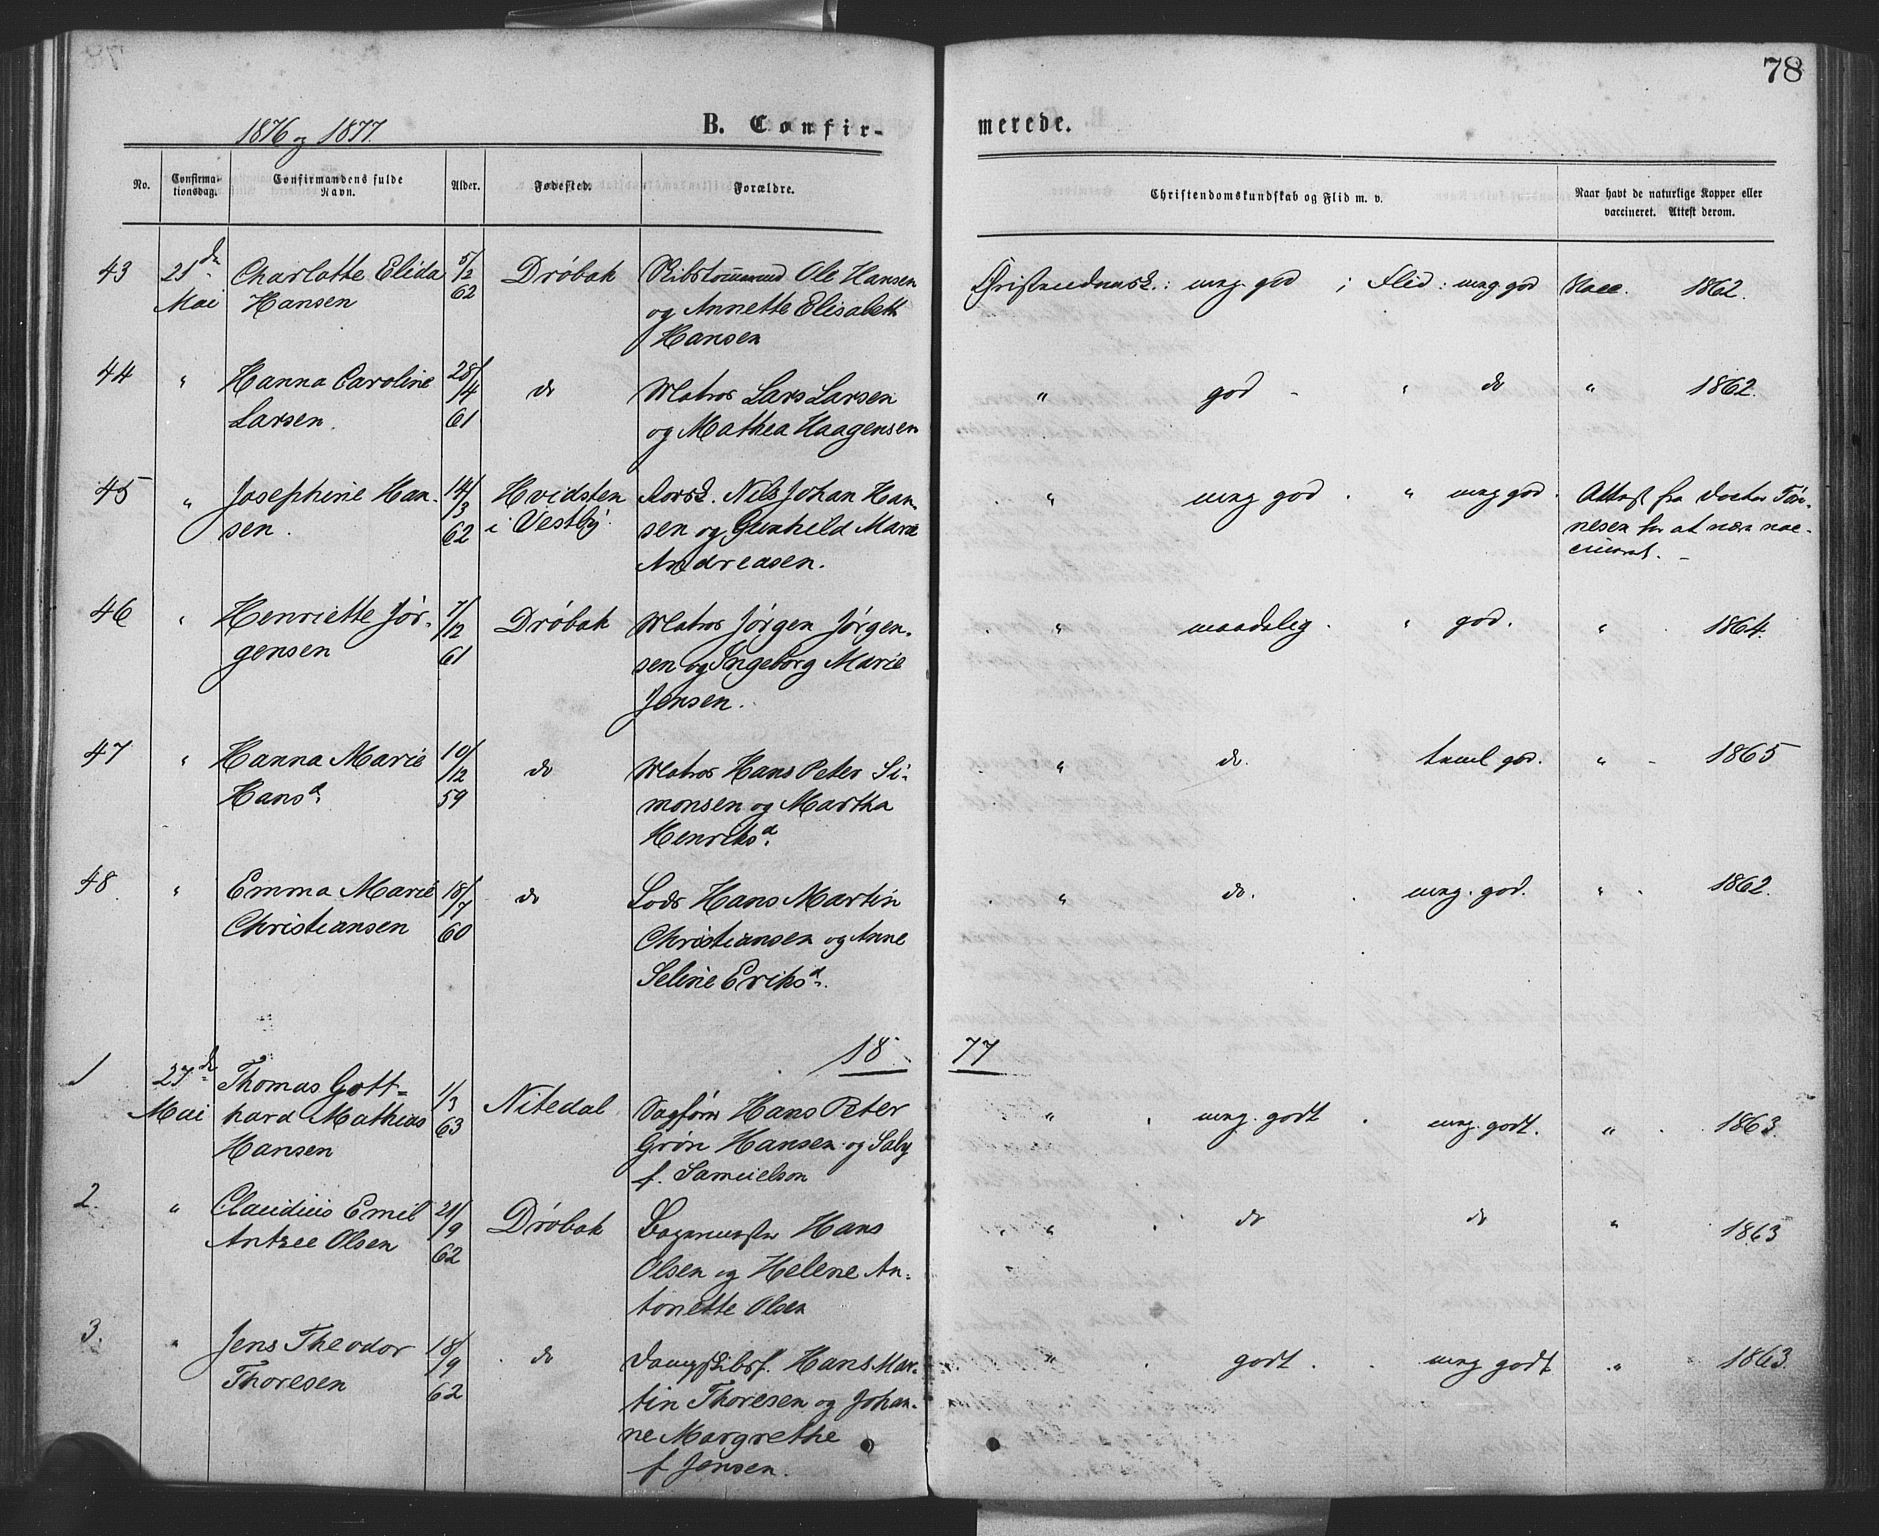 78
1876 og 1877.
B. Confir-
merede.
No.
Confirma-
tionsdag.
Confirmandens fulde
Navn.
Alder.
Fødested.
Forældre.
Christendomskundskab og Flid m. v.
Naar havt de naturlige Kopper eller
vaccineret. Attest derom.
43 21de Charlotte Elida 5/12 Drøbak Skibstømmermd Ole Hansen Christendomsk.: meg. god ; Flid: meg. god Vacc. 1862.
Mai Hansen 62 og Annette Elisabeth
Hansen
44 " Hanna Caroline 28/4 do Matros Lars Larsen " god - " do " 1862.
Larsen. 61 og Mathea Haagensen
45 " Josephine Han- 14/3 Hvidsten Aorsk. Nils Johan Han- " meg god. " meg god. Attest fra Doctor Tøn-
sen. 62 i Vestby. sen og Gunhild Marie nesen for at være vac-
Andreasen. cineret. -
46 " Henriette Jør- 7/12 Drøbak Matros Jørgen Jørgen- " maadelig. " god. " 1864.
gensen 61 sen og Ingeborg Marie
Jensen.
47 " Hanna Marie 10/12 do Matros Hans Peter Si- " do. taal. god. " - 1865
Hansd. 59 monsen og Martha
Henriksd.
48. " Emma Marie 18/7 do Lods Hans Martin " do. meg. god. " 1862.
Christiansen 60 Christiansen og Anne
Seline Eriksd.
18 77
1 27de Thomas Gott- 1/3 Nitedal Sagfører Hans Peter " meg. godt meg. godt. " 1863.
Mai hard Mathias 63 Grøn Hansen og Saby
Hansen f. Samuelson
2. " Claudius Emil 21/9 Drøbak Bagermester Hans " do do " 1863
Olsen 62 Olsen og Helene An-
tonette Olsen
3. " Jens Theodor 18/9 do Dampskibsf. Hans Mar- " godt. meg godt " 1863.
Thoresen 62 tin Thoresen og Johan-
ne Margrethe
f. Jensen.